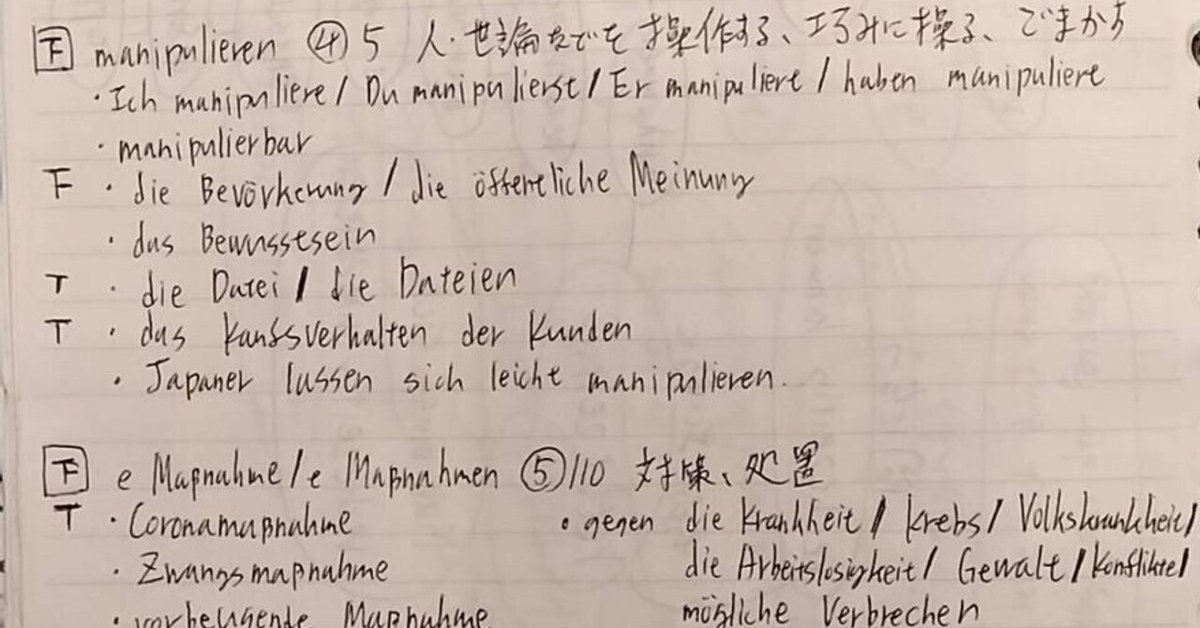 F manipulieren ④ 5 人・世論などを操作する、巧みに操る、ごまかす
・Ich manipuliere / Du manipulierst / Er manipuliere / haben manipuliere
・manipulierbar
F ・die Bevörkerung / die öffentliche Meinung
・das Bewusstsein
T ・die Datei / die Dateien
T ・das Kaufsverhalten der Kunden
・Japaner lassen sich leicht manipulieren.
F e Maßnahme / e Maßnahmen ⑤/110 対策、処置
T ・Coronamaßnahme ・gegen die Krankheit / Krebs / Volkskrankheit /
・Zwangsmaßnahme die Arbeitslosigkeit / Gewalt / Konflikte /
・vorbeugende Maßnahme mögliche Verbrechen